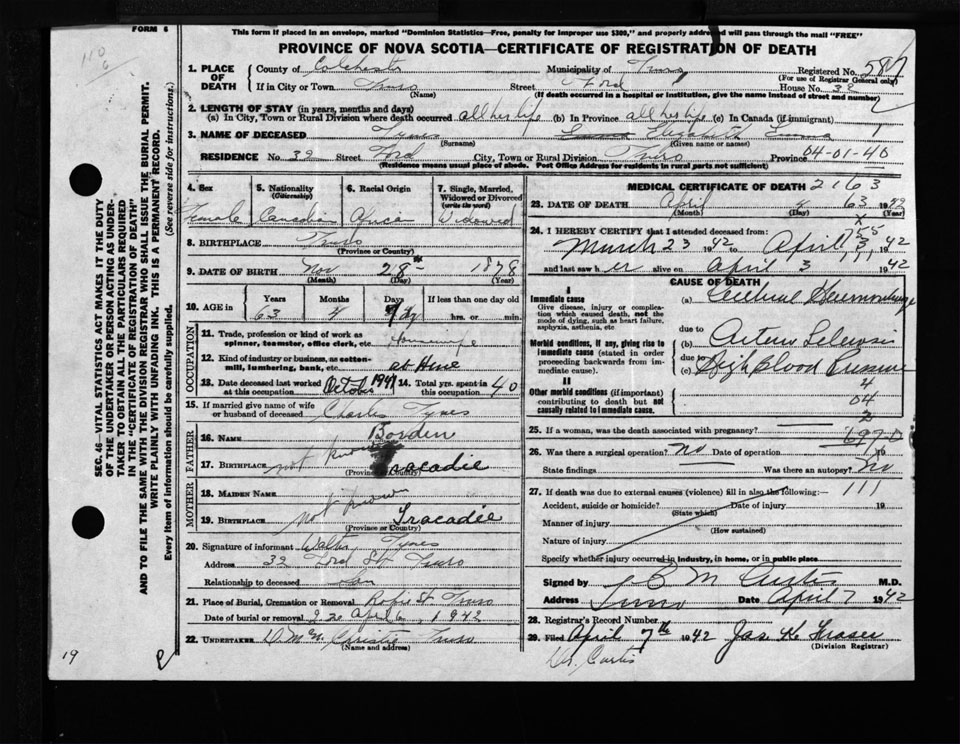 FORM 6
This form if placed in an envelope, marked "Dominion Statistics—Free, penalty for improper use $300," and properly addressed will pass through the mail "FREE"
PROVINCE OF NOVA SCOTIA—CERTIFICATE OF REGISTRATION OF DEATH
1. PLACE OF DEATH County of Colchester Municipality of Truro Registered No.
(For use of Registrar General only)
If in City or Town Truro Street Ford House No. 32
(Name) (If death occurred in a hospital or institution, give the name instead of street and number)
2. LENGTH OF STAY (in years, months and days)
(a) In City, Town or Rural Division where death occurred all her life (b) In Province all her life (c) In Canada (if immigrant)
3. NAME OF DECEASED Tynes Elizabeth
(Surname) (Given name or names)
RESIDENCE No. 32 Street Ford City, Town or Rural Division Truro Province 04-01-40
(Residence means usual place of abode. Post Office Address for residents in rural parts not sufficient)
4. Sex 5. Nationality (Citizenship) 6. Racial Origin 7. Single, Married, Widowed or Divorced (write the word)
Female Canadian African Widowed
8. BIRTHPLACE Truro
(Province or Country)
9. DATE OF BIRTH Nov 28 1878
(Month) (Day) (Year)
10. AGE in Years Months Days If less than one day old
63 4 hrs. or min.
OCCUPATION
11. Trade, profession or kind of work as spinner, teamster, office clerk, etc. Housewife
12. Kind of industry or business, as cotton-mill, lumbering, bank, etc. at Home
13. Date deceased last worked at this occupation October 1941 14. Total yrs. spent in this occupation 40
15. If married give name of wife or husband of deceased Charles Tynes
FATHER
16. NAME Borden
17. BIRTHPLACE not known Tracadie
(Province or Country)
MOTHER
18. MAIDEN NAME not known
19. BIRTHPLACE Tracadie
(Province or Country)
20. Signature of informant Walter Tynes
Address 32 Ford St Truro
Relationship to deceased Son
21. Place of Burial, Cremation or Removal Robie St Truro
Date of burial or removal April 6, 1942
22. UNDERTAKER Christie Truro
(Name and address)
MEDICAL CERTIFICATE OF DEATH 2163
23. DATE OF DEATH April 4 63 1942
(Month) (Day) (Year)
24. I HEREBY CERTIFY that I attended deceased from:
March 23 1942 to April 3, 1942
and last saw her alive on April 3 1942
CAUSE OF DEATH
I
Immediate cause
Give disease, injury or complication which caused death, not the mode of dying, such as heart failure, asphyxia, asthenia, etc.
(a) Cerebral Hemorrhage
due to
Morbid conditions, if any, giving rise to immediate cause (stated in order proceeding backwards from immediate cause).
(b) Arterio Sclerosis
due to
(c) High Blood Pressure
II
Other morbid conditions (if important) contributing to death but not causally related to immediate cause.
4
04
2
25. If a woman, was the death associated with pregnancy?
26. Was there a surgical operation? No Date of operation 19
State findings Was there an autopsy? No
27. If death was due to external causes (violence) fill in also the following:— 111
Accident, suicide or homicide? Date of injury 19
(State which)
Manner of injury
(How sustained)
Nature of injury
Specify whether injury occurred in industry, in home, or in public place
Signed by C M Curtis M.D.
Address Truro Date April 7 1942
28. Registrar's Record Number
29. Filed April 7th 1942 Jas K Fraser
(Division Registrar)
Dr. Curtis
SEC. 46—VITAL STATISTICS ACT MAKES IT THE DUTY OF THE UNDERTAKER OR PERSON ACTING AS UNDERTAKER TO OBTAIN ALL THE PARTICULARS REQUIRED IN THE "CERTIFICATE OF REGISTRATION OF DEATH" AND TO FILE THE SAME WITH THE DIVISION REGISTRAR WHO SHALL ISSUE THE BURIAL PERMIT.
WRITE PLAINLY WITH UNFADING INK. THIS IS A PERMANENT RECORD.
Every item of information should be carefully supplied. (See reverse side for instructions.)
19